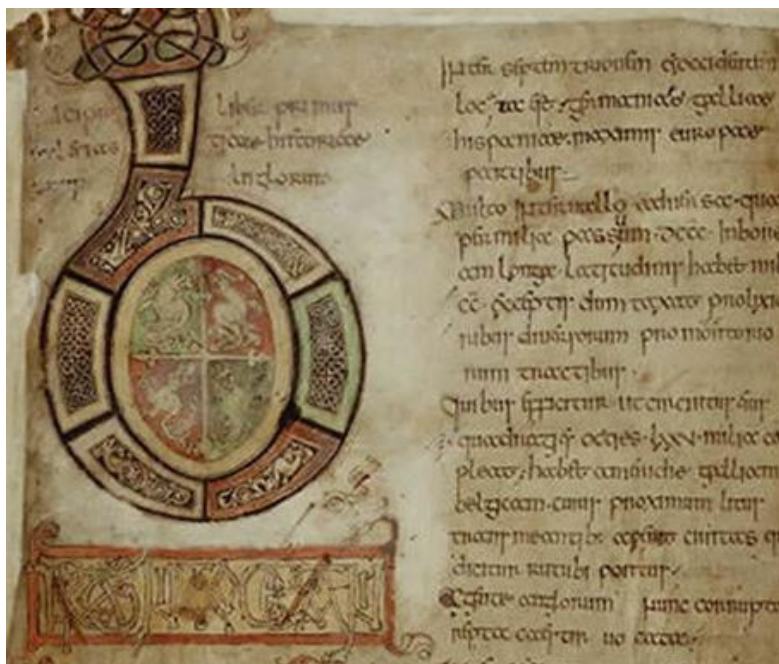 Incipit liber primus
aeclesias ticae historiae
anglorum
B
inter septentrionem & occidentem
loc ta est germaniae galliae
hispaniae maximis europae
partibus
Multo interuallo aduersae quae
per milia passuum dccc in bore
am longa latitudinis habet mil
cc exceptis dum taxat prolixi
ribus diuersorum promontorio
rum tractibus
Quibus efficitur ut circuitus eius
quadragies octies lxxv milia co
pleat habet a meridie galliam
belgicam cuius proximum litus
transmeantibus aperit ciuitas q
dicitur rutubi portus
A gente anglorum nunc corrupte
reptacaestir uocata